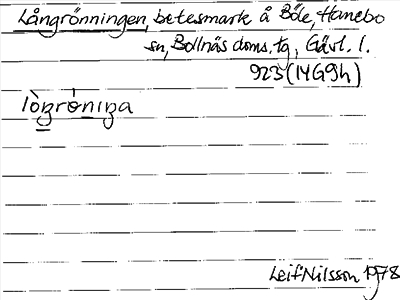 Långrönningen, betesmark å Böle, Hanebo
sn, Bollnäs doms. tg, Gävl. l.
923 (14G9h)
lòŋrö́niŋa
Leif Nilsson 1978